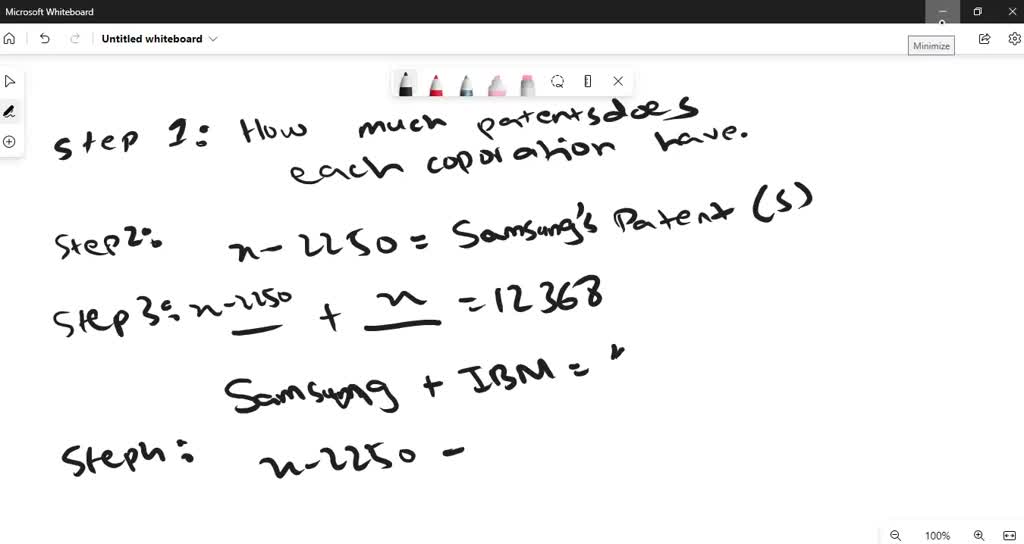 Microsoft Whiteboard
Untitled whiteboard
Minimize
step 1: How much patents does
each coporation have.
Step2: x - 2250 = Samsung's Patent (S)
Step3: x - 2250 + x = 12368
Samsung + IBM =
Step4: x - 2250 -
100%